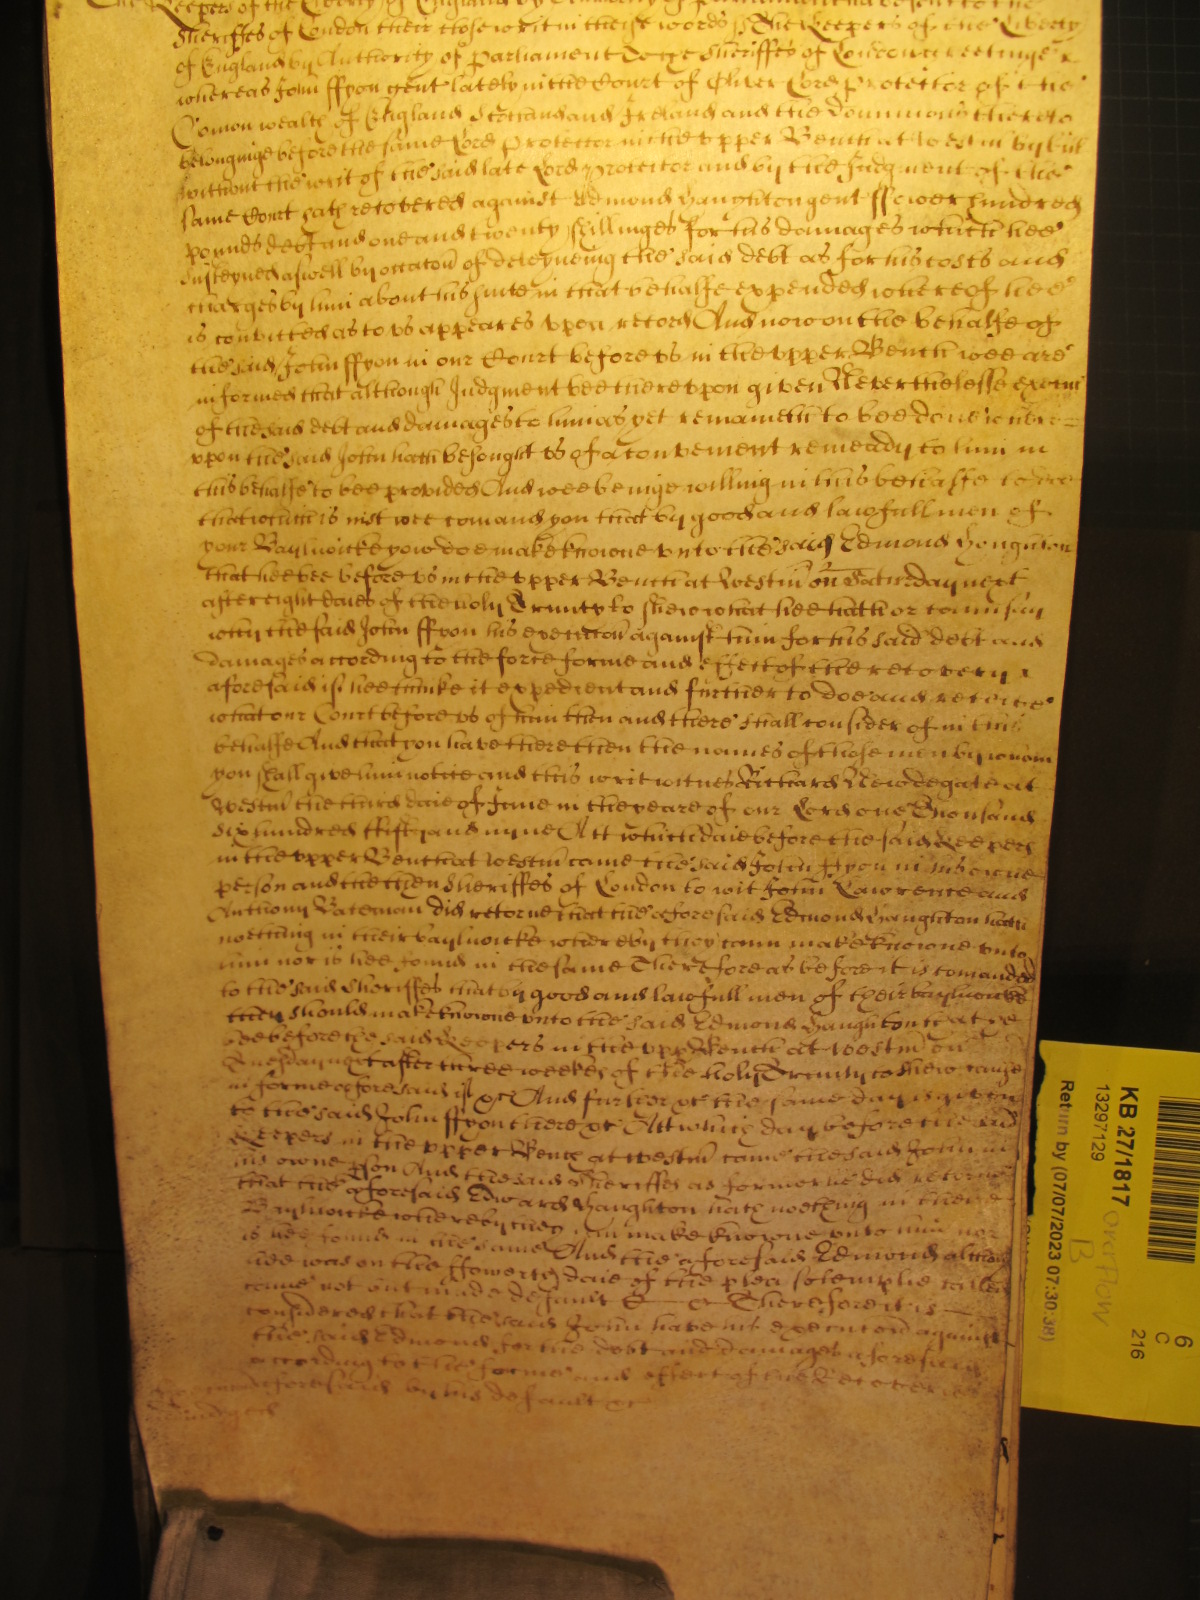 Keepers of the Liberty of England by Authority of Parliament have sent to the
Sheriffes of London their close writ in theise words ss The Keepers of the Liberty
of England by Authority of Parliament To the Sheriffes of London Greetinge
whereas John ffyon gent lately in the Court of Oliver Lord Protector of the
Comon wealth of England Scotland and Ireland and the Dominions thereto
belonginge before the same Lord Protector in the upper Bench at Westm by bill
without the writ of the said late Lord Protector and by the Judgment of the
same Court hath recovered against Edmond Haughton gent ffower hundred
pounds debt and one and twenty shillinges for his damages which hee
susteyned aswell by occacon of deteyneing the said debt as for his costs and
charges by him about his suite in that behalfe expended whereof hee
is convicted as to us appeares upon record And now on the behalfe of
the said John ffyon in our Court before us in the upper Bench wee are
informed that although Judgment bee thereupon given Neverthelesse execucon
of the said debt and damages to him as yet remaineth to bee done where=
upon the said John hath besought us of a convenient remeady to him in
this behalfe to bee provided And wee beinge willing in this behalfe to doe
that which is iust wee comand you that by good and lawfull men of
your Bayliwicke yow doe make knowne unto the said Edmond Haughton
that hee bee before us in the upper Bench at Westm on Saturday next
after eight daies of the holy Trinity to shew what hee hath or cann say
why the said John ffyon his execucon against him for his said debt and
damages according to the force forme and effect of the recovery
aforesaid if hee thinke it expedient and further to doe and receive
what our Court before us of him then and there shall consider of in this
behalfe And that you have there then the names of those men by whom
you shall give him notice and this writ witnes Richard Newdegate at
Westm the third daie of June in the yeare of our Lord one Thousand
six hundred ffifty and nyne Att which daie before the said Keepers
in the upper Bench at Westm came the said John ffyon in his owne
person and the then Sheriffes of London to wit John Lawrence and
Anthony Bateman did retorne that the aforesaid Edmond Haughton hath
noething in their bayliwicke whereby they cann make knowne unto
him nor is hee found in the same Therefore as before it is comanded
to the said Sheriffes that by good and lawfull men of their bayliwicke
they should make knowne unto the said Edmond Haughton that he
bee before the said Keepers in the upper Bench at Westm on
Tuesday next after three weekes of the holy Trinity to shew cause
in forme aforesaid if &c And further &c the same day is given
to the said John ffyon there &c Att which day before the said
Keepers in the upper Bench at Westm came the said John in
his owne pson And the said Sheriffes as formerlie did retorne
that the aforesaid Edward Haughton hath noething in their
Bayliwicke whereby they cann make knowne unto him nor
is hee found in the same And the aforesaid Edmond although
hee was on the ffowerth daie of the plea solemplie called
came not but made default &c Therefore it is
considered that the said John have his execucon against
the said Edmond for the debt and damages aforesaid
according to the forme and effect of the Recoverie
aforesaid by his default &c
KB 27/1817
13297129
Return by (07/07/2023 07:30:38)
overflow
B
6
C
216